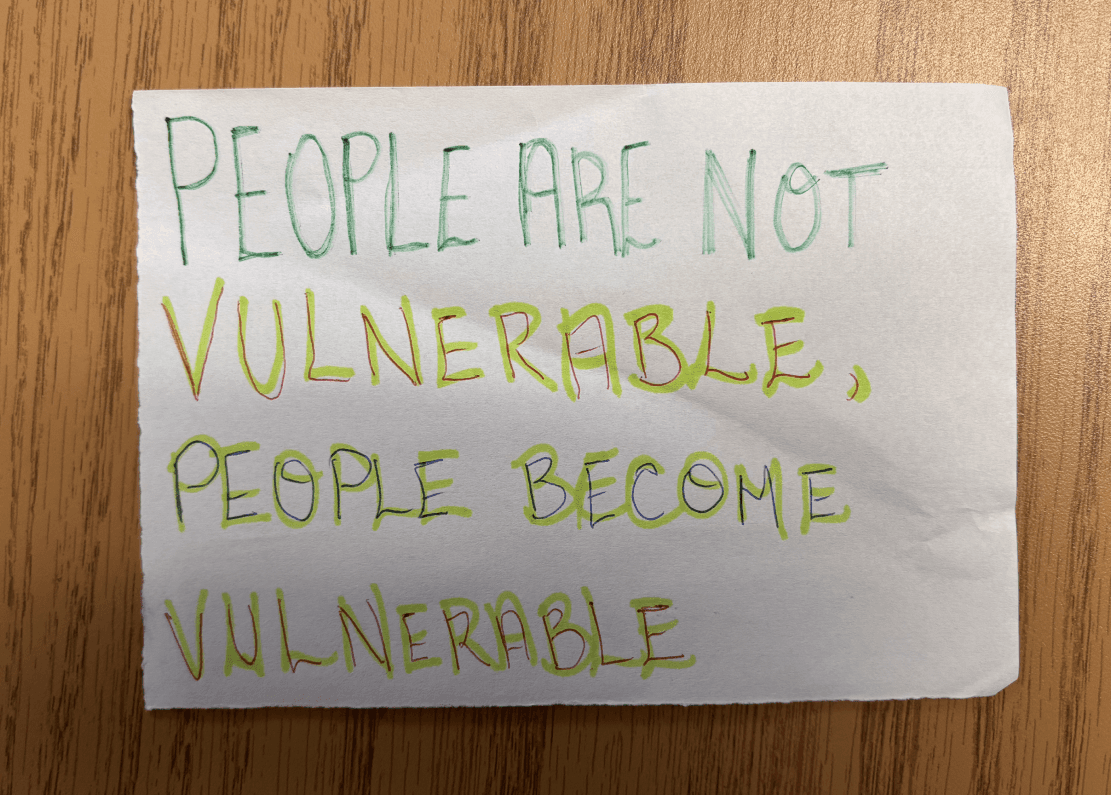 PEOPLE ARE NOT
VULNERABLE,
PEOPLE BECOME
VULNERABLE